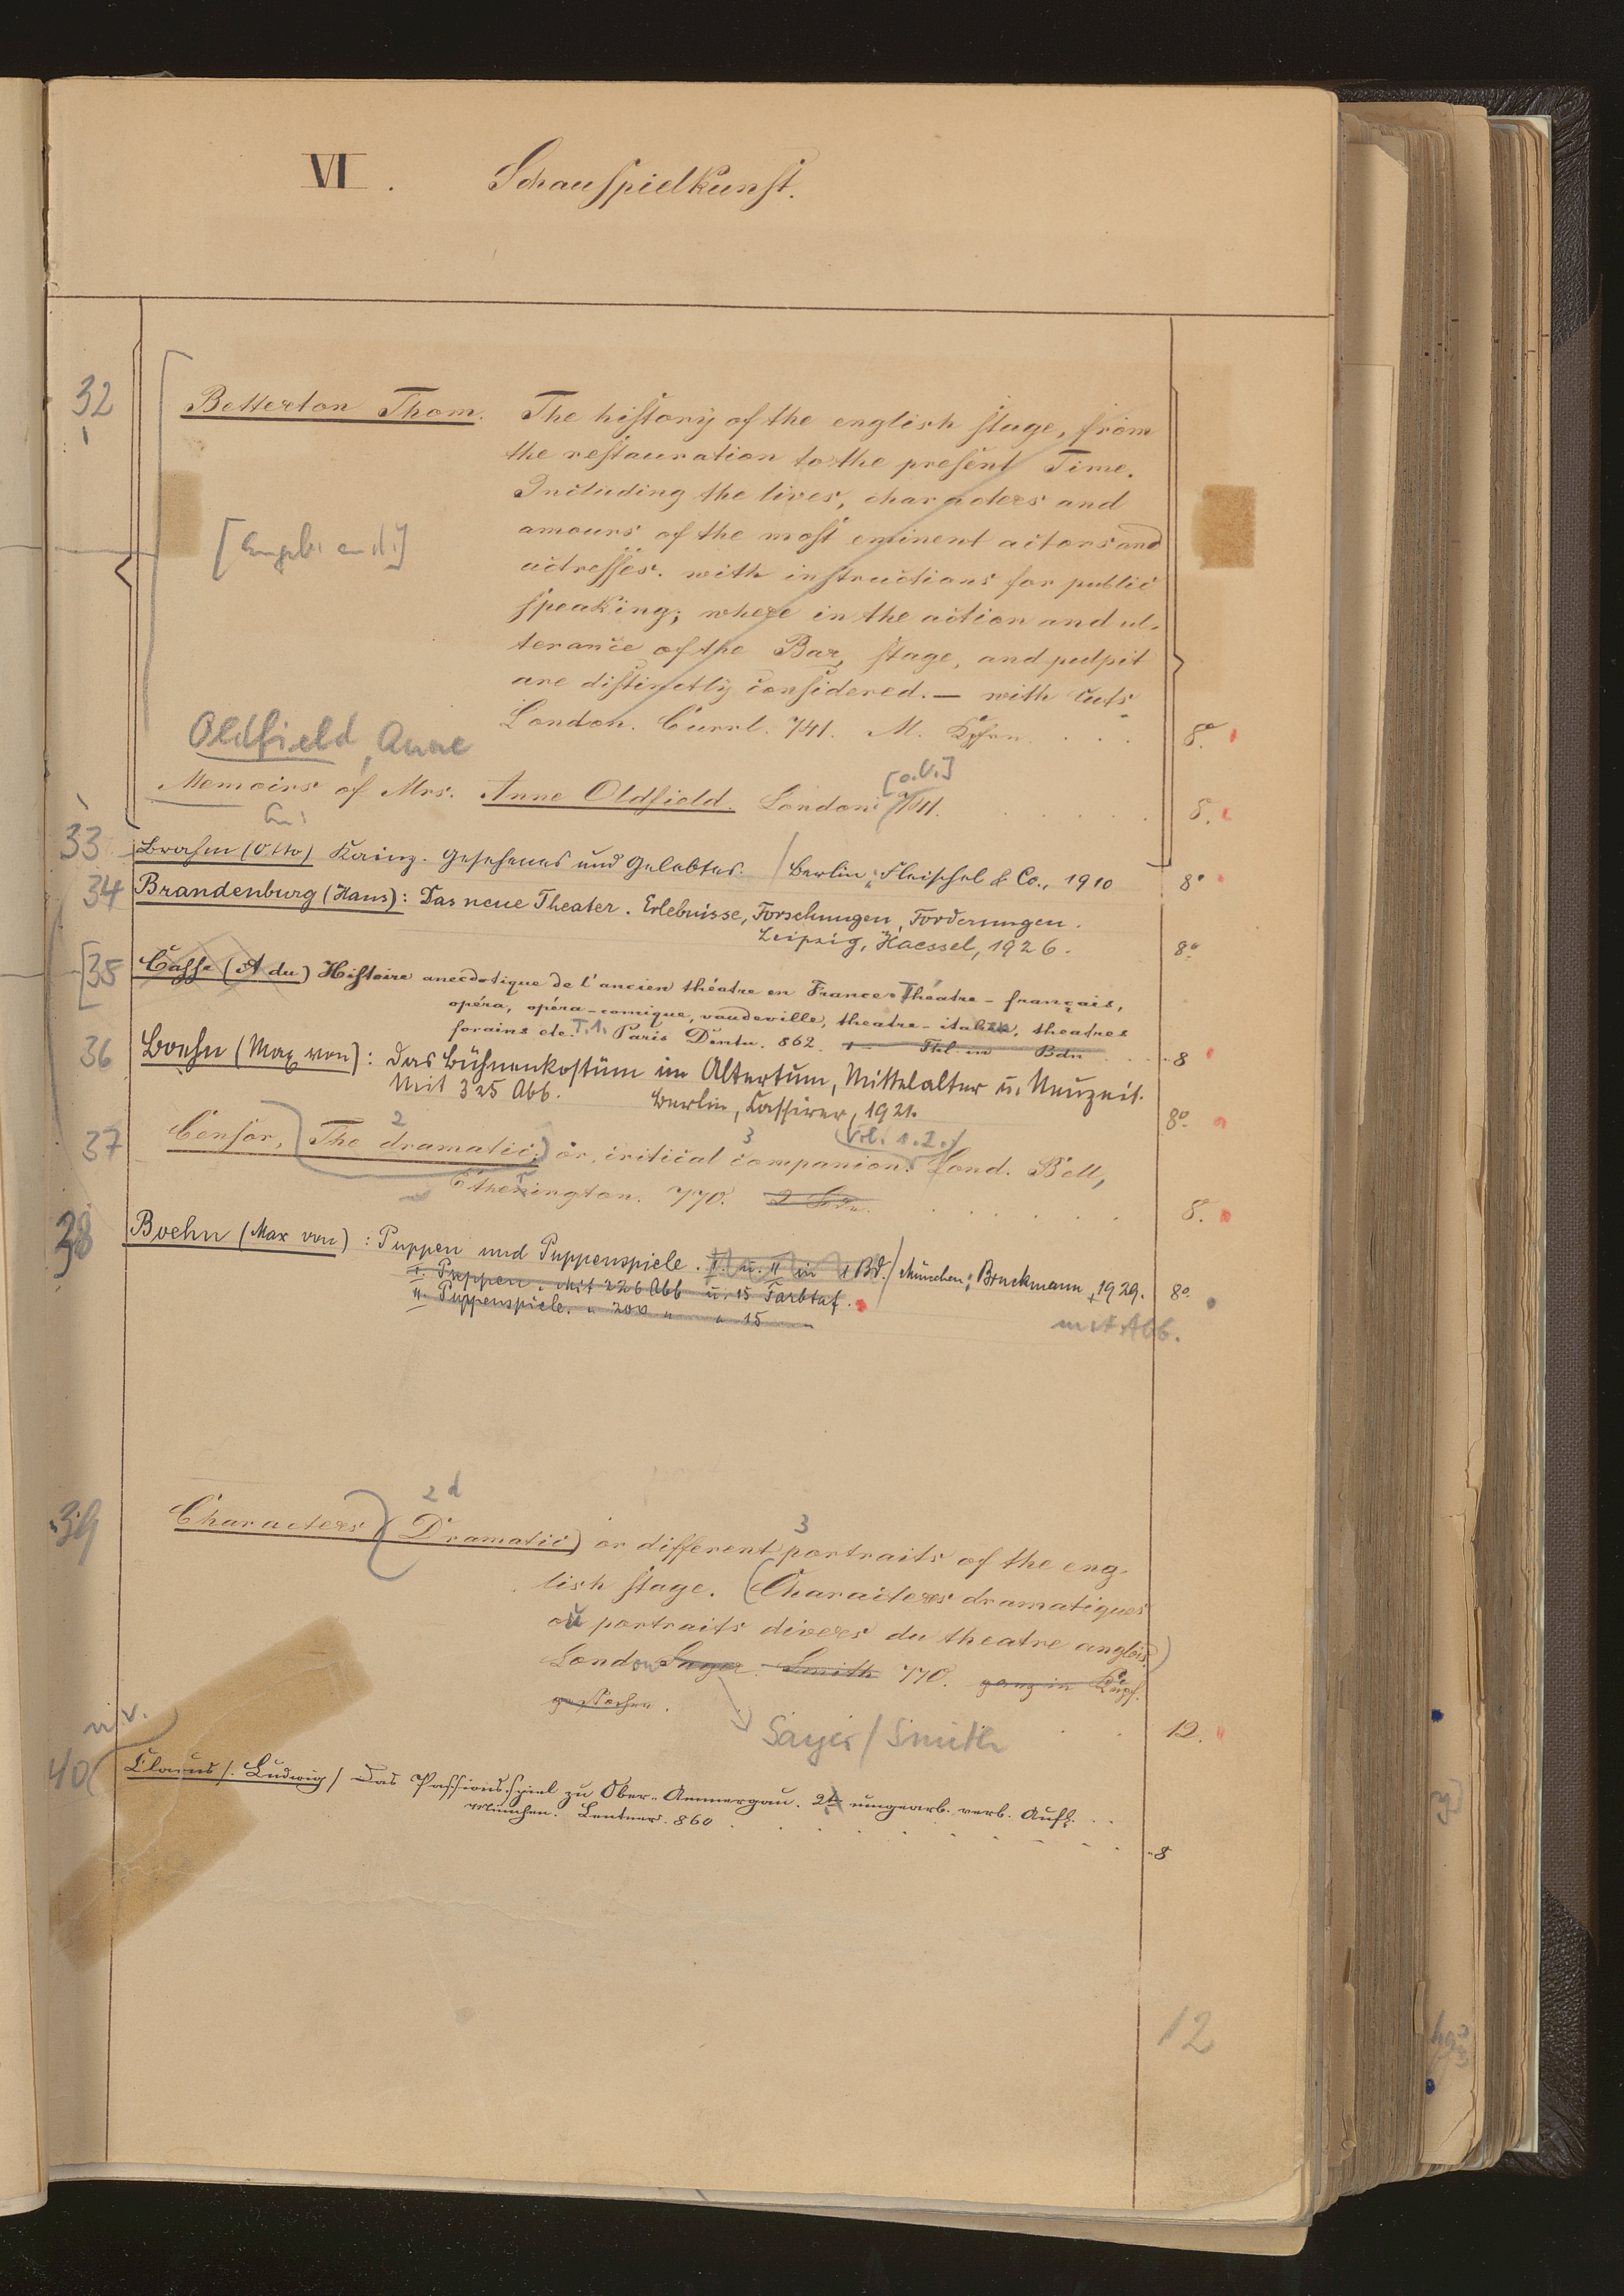 VI. Schauspielkunst.
32
Betterton Thom. The history of the english stage, from
the restauration to the present Time.
Including the lives, characters and
amours of the most eminent actors and
actresses. with instructions for public
speaking; where in the action and ut-
terance of the Bar, stage, and pulpit
are distinctly considered. — with Cuts
London. Currl. 741. M. Kpfrn. . . . 8°.
Oldfield, Anne
Memoirs of Mrs. Anne Oldfield. London 741. . . . . . . 8.
[o.V.]
33 Brahm (Otto) Kainz. Gesehenes und Gelebtes. / Berlin: Fleischel & Co., 1910 8°
34 Brandenburg (Hans): Das neue Theater. Erlebnisse, Forschungen, Forderungen.
Leipzig, Haessel, 1926. 8°.
[35 Casse (A du) Histoire anecdotique de l'ancien théatre en France. Théatre-français,
opéra, opéra-comique, vaudeville, theatre-italien, theatres
forains etc. T. 1. Paris Dentu. 862. 1 Thl. in Bdn . . . . 8
36 Boehn (Max von): Das Bühnenkostüm im Altertum, Mittelalter u. Neuzeit.
Mit 325 Abb. Berlin, Cassirer, 1921. 8°.
2 3 Vol. 1.2./
37 Censor, (The dramatic;) or, critical companion. Lond. Bell,
Etherington. 770. 2 Bde. . . . . . . 8.
38 Boehn (Max von): Puppen und Puppenspiele. I. u. II in 1 Bd. / München: Bruckmann, 1929. 8°.
I. Puppen. Mit 226 Abb u. 15 Farbtaf.
II. Puppenspiele. " 200 " " 15 "
mit Abb.
2d 3
39 Characters (Dramatic) or different portraits of the eng-
lish stage. (Characteres dramatiques
ou portraits divers du theatre anglois)
London Sayer. Smith 770. ganz in Kupf.
gestochen. . . 12.
Sayer / Smith
40 Clarus /. Ludwig / Das Passionsspiel zu Ober-Ammergau. 2te umgearb. verb. Aufl. . .
München. Lentner. 860 . . . . . . . . . 8
12